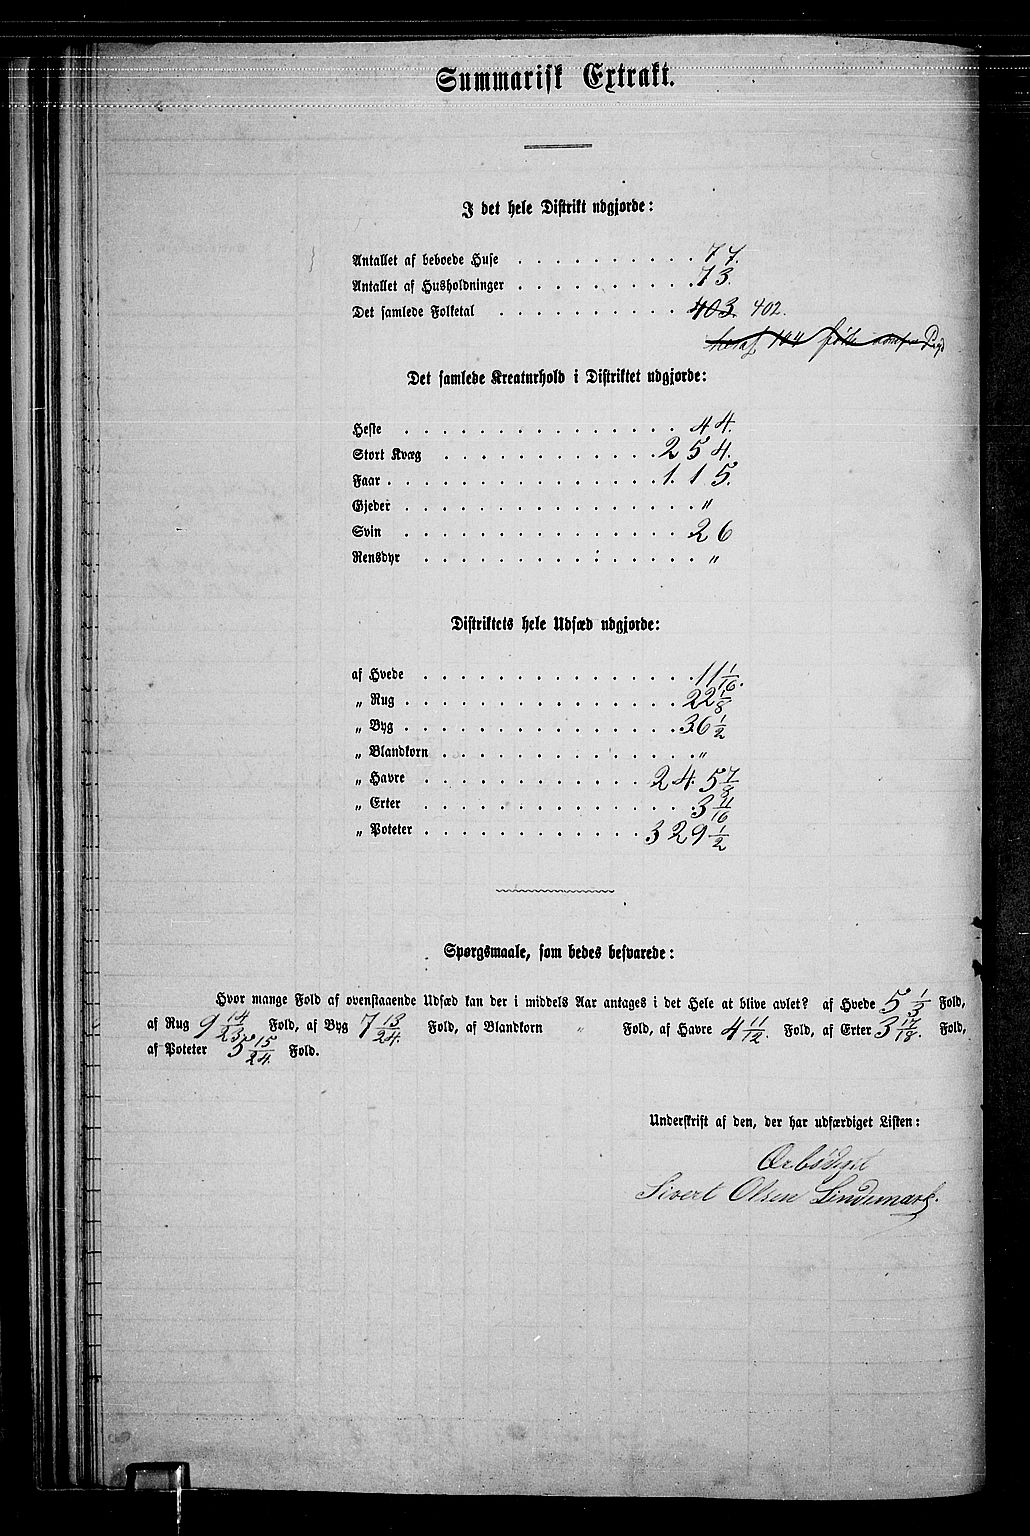 Summarisk Extrakt.
I det hele Distrikt udgjorde:
Antallet af beboede Huse . . . . . . . . . . 77.
Antallet af Husholdninger . . . . . . . . . . 73.
Det samlede Folketal . . . . . . . . . . . 403. 402.
Det samlede Kreaturhold i Distriktet udgjorde:
Heste . . . . . . . . . . . . . . . 44.
Stort Kvæg . . . . . . . . . . . . 254.
Faar . . . . . . . . . . . . . . . 115.
Gjeder . . . . . . . . . . . . . . . „
Svin . . . . . . . . . . . . . . . 26
Rensdyr . . . . . . . . . . . . . . „
Distriktets hele Udsæd udgjorde:
af Hvede . . . . . . . . . . . . . . 11 1/16.
„ Rug . . . . . . . . . . . . . . . 22 1/8
„ Byg . . . . . . . . . . . . . . . 36 1/2
„ Blandkorn . . . . . . . . . . . . . „
„ Havre . . . . . . . . . . . . 245 7/8
„ Erter . . . . . . . . . . . . . . 3 11/16
„ Poteter . . . . . . . . . . . . 329 1/2
Spørgsmaale, som bedes besvarede:
Hvor mange Fold af ovenstaaende Udsæd kan der i middels Aar antages i det Hele at blive avlet? af Hvede 5 1/3 Fold,
af Rug 9 14/23 Fold, af Byg 7 13/24. Fold, af Blandkorn „ Fold, af Havre 4 11/12. Fold, af Erter 3 17/18. Fold,
af Poteter 5 15/24. Fold.
Underskrift af den, der har udfærdiget Listen:
Ærbødigst
Sivert Olsen Lindemark.